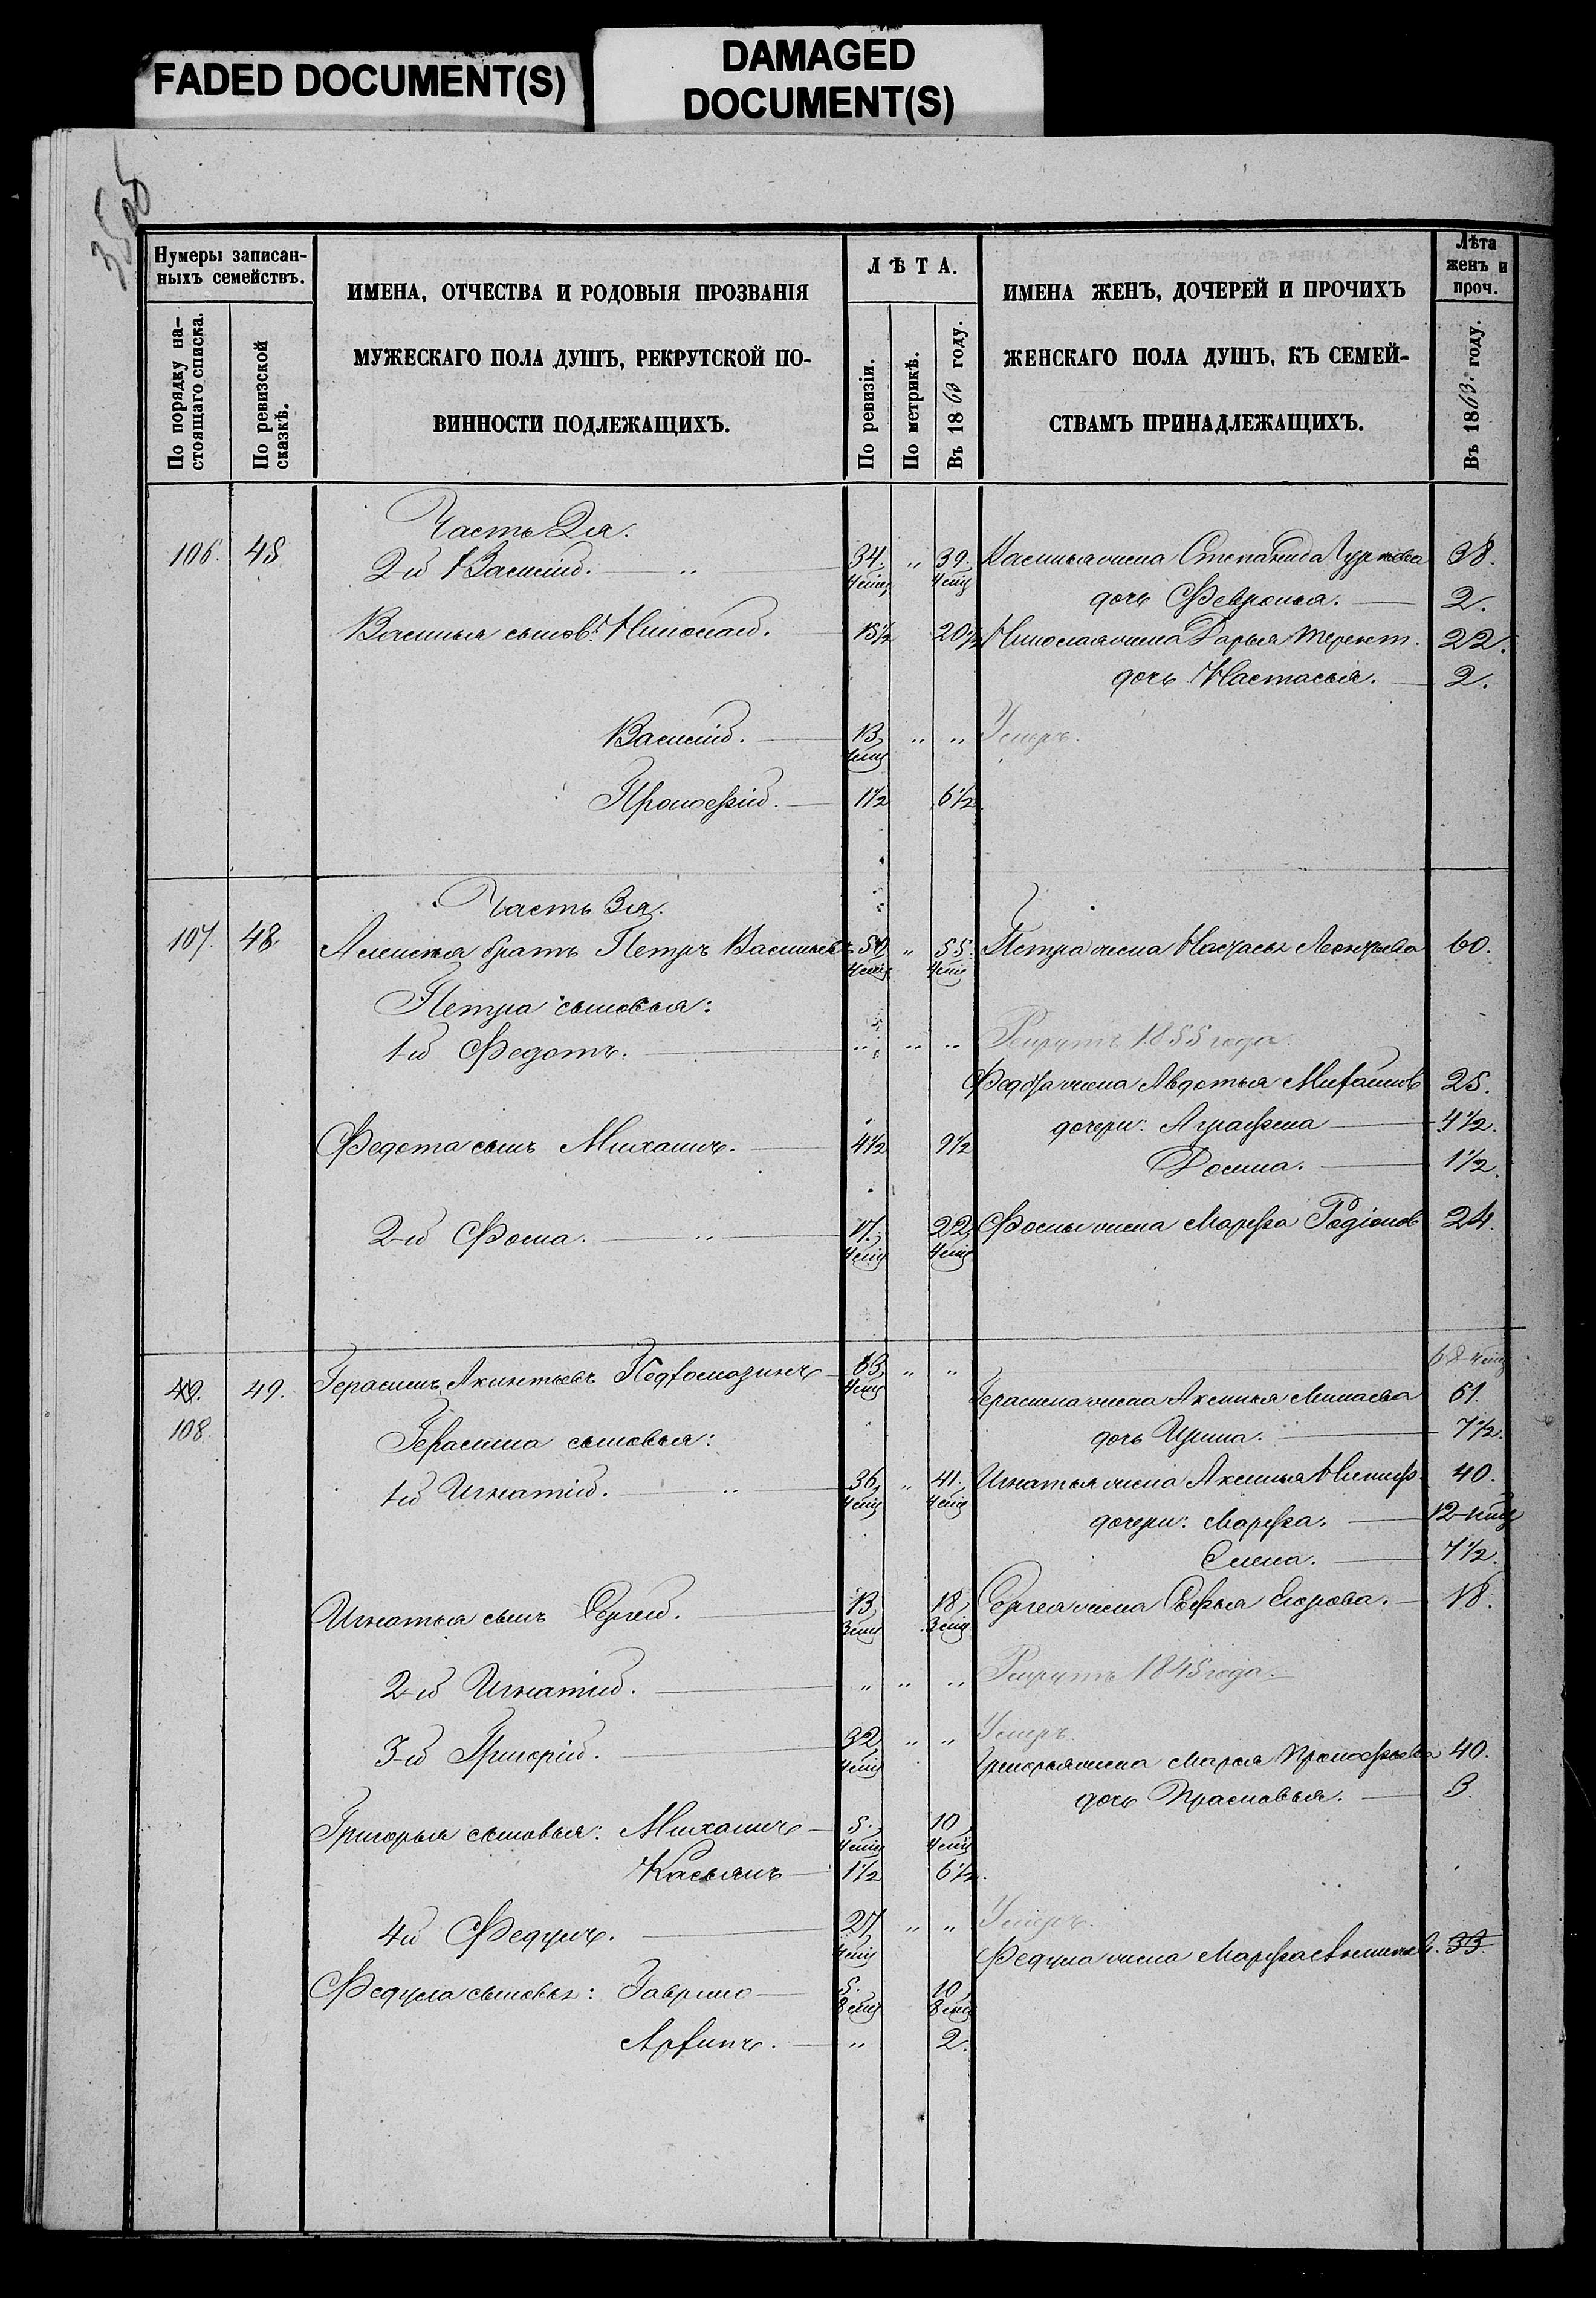 FADED DOCUMENT(S)
DAMAGED
DOCUMENT(S)
Нумеры записан-
ныхъ семействъ.
По порядку на-
стоящаго списка.
По ревизской
сказкѣ.
ИМЕНА, ОТЧЕСТВА И РОДОВЫЯ ПРОЗВАНІЯ
МУЖЕСКАГО ПОЛА ДУШЪ, РЕКРУТСКОЙ ПО-
ВИННОСТИ ПОДЛЕЖАЩИХЪ.
ЛѢТА.
По ревизіи.
По метрикѣ.
Въ 1863 году.
ИМЕНА ЖЕНЪ, ДОЧЕРЕЙ И ПРОЧИХЪ
ЖЕНСКАГО ПОЛА ДУШЪ, КЪ СЕМЕЙ-
СТВАМЪ ПРИНАДЛЕЖАЩИХЪ.
Лѣта
женъ и
проч.
Въ 1863. году.
Часть 2я.
106. 48 2й Василій. 34. 39. Василья жена Степанида Гуркова 38.
дочь Февронья. 2.
Василья сынов: Николай. 15½ 20½ Николая жена Дарья Терент. 22.
дочь Настасья. 2.
Василій. 13 Умеръ.
Прокофій. 1½ 6½
Часть 3я.
107. 48 Алексѣя братъ Петръ Васильевъ 50 55. Петра жена Настасья 60.
Петра сыновья:
1й Федотъ. Рекрутъ 1855 года.
Федота жена Авдотья Михайлов 25.
дочери: Аграфена 4½.
Федота сынъ Михаилъ. 4½ 9½
Домна. 1½.
2й Фома. 17. 22 Фомы жена Марфа Родіонов 24.
49. 49. Герасимъ Акинтьевъ 63
108. Герасима жена Аксинья Минаева 61.
Герасима сыновья: дочь Ирина. 7½.
1й Игнатій. 36 41. Игнатья жена Аксинья Никиф. 40.
дочери: Марфа. 12
Елена. 7½.
Игнатья сынъ Сергей. 13 18 Сергея жена Софья Егорова. 18.
2й Игнатій. Рекрутъ 1845 года.
3й Григорій. 32 Умеръ.
Григорья жена Марья Прокофьева 40.
дочь Прасковья. 3.
Григорья сыновья: Михаилъ 5. 10
Касьянъ 1½ 6½.
4й Федулъ. 27 Умеръ.
Федула жена Марфа 33.
Федула сыновья: Гаврило 5. 10
Архипъ. 2.